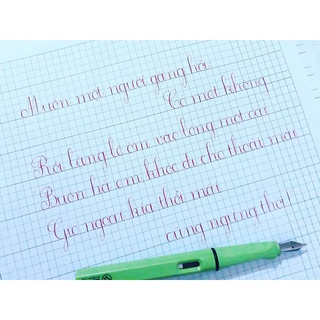 Muốn một người gắng hỏi
Có một không
Rồi lặng lẽ ôm vào lòng một cái
Buồn hả em, khóc đi cho thoải mái
Gió ngoài kia thổi mãi
cũng ngừng thôi!